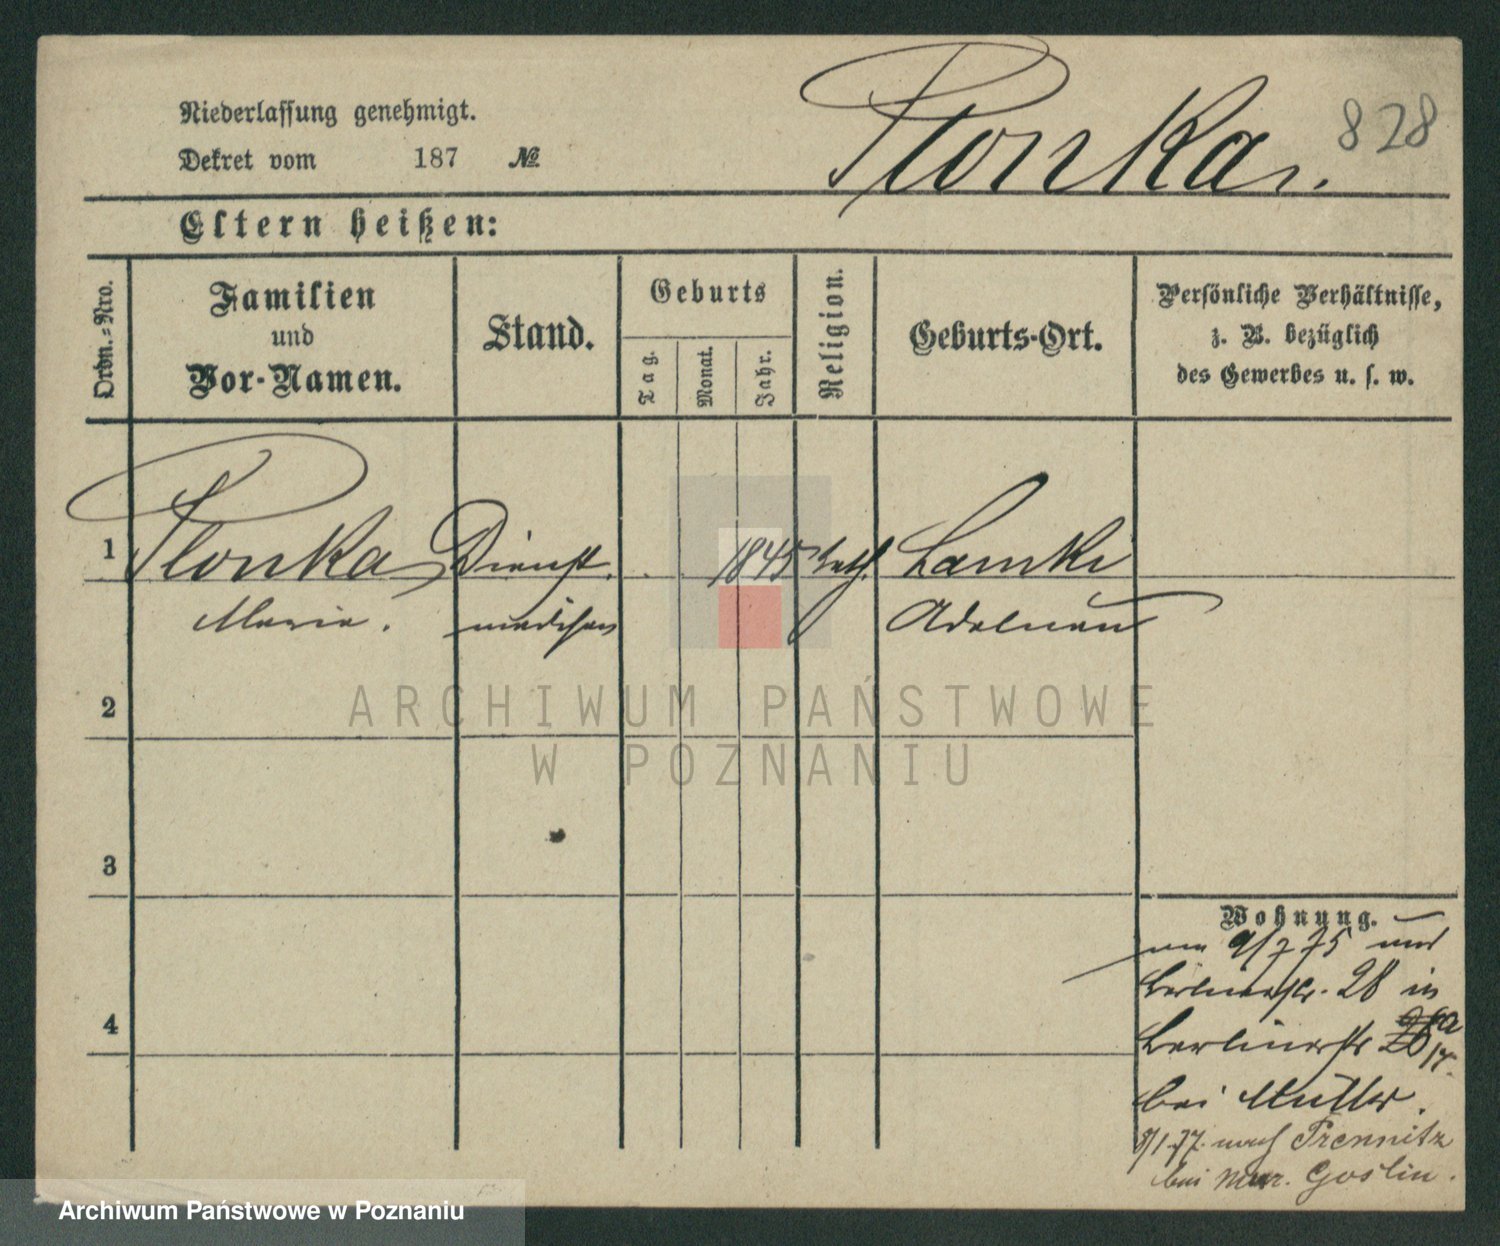 Niederlassung genehmigt.
Dekret vom 187 №
Plonka.
828
Eltern heißen:
Ordn.-Nro.
Familien
und
Vor-Namen.
Stand.
Geburts
Tag.
Monat.
Jahr.
Religion.
Geburts-Ort.
Persönliche Verhältnisse,
z. B. bezüglich
des Gewerbes u. s. w.
1 Plonka Dienst 1845 kath. Lamki
Marie. mädchen Adelnau
2
3
4
Wohnung.
9/7 75
Berlinerstr. 28 in
Berlinerstr
bei Mutter.
8/1. 77. nach Przennitz
bei Mur. Goslin.
ARCHIWUM PAŃSTWOWE
W POZNANIU
Archiwum Państwowe w Poznaniu